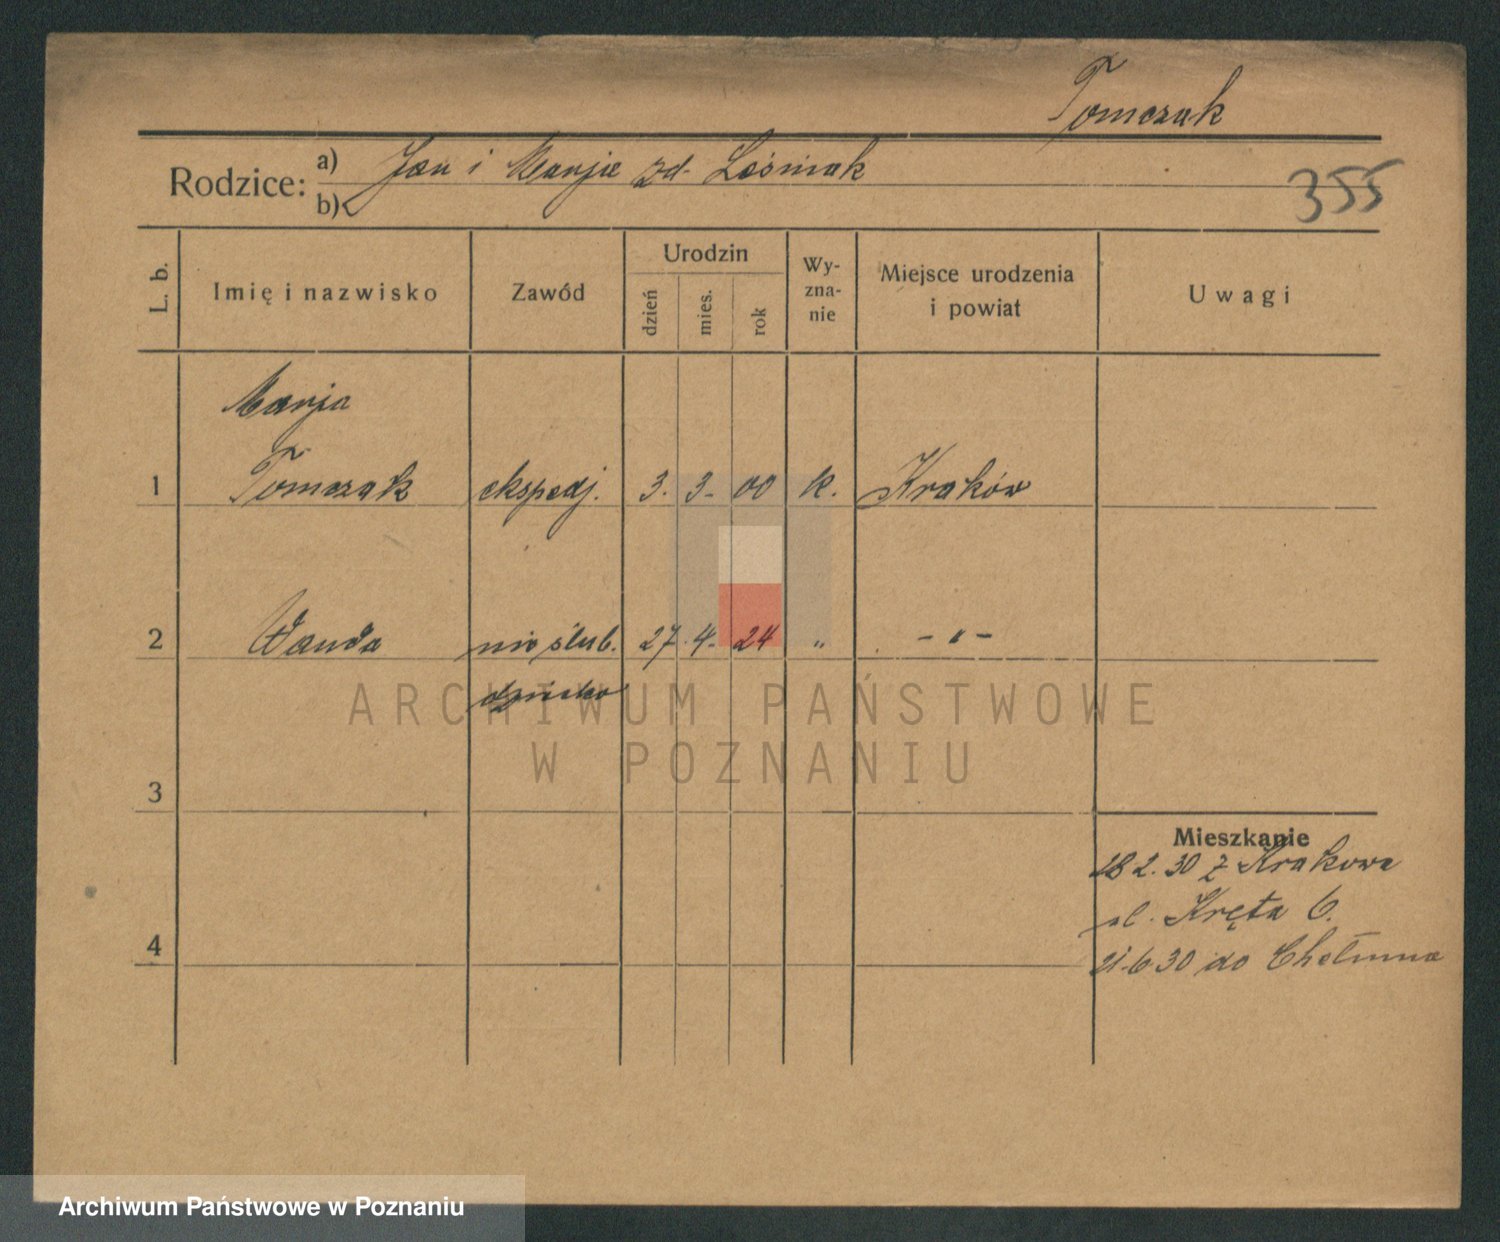 Tomczak
Rodzice: a) Jan i Marjie zd. Leśniak
b)
355
L. b. Imię i nazwisko Zawód Urodzin dzień mies. rok Wyznanie Miejsce urodzenia i powiat Uwagi
Marja
1 Tomczak ekspedj. 3. 3- 00 k. Kraków
2 Wanda nieślub. 27. 4- 24 " - " -
dziecko
ARCHIWUM PAŃSTWOWE
W POZNANIU
3
Mieszkanie
18 2. 30 z Krakowa
ul. Kręta 6.
4 21.6 30 do Chełmna
Archiwum Państwowe w Poznaniu